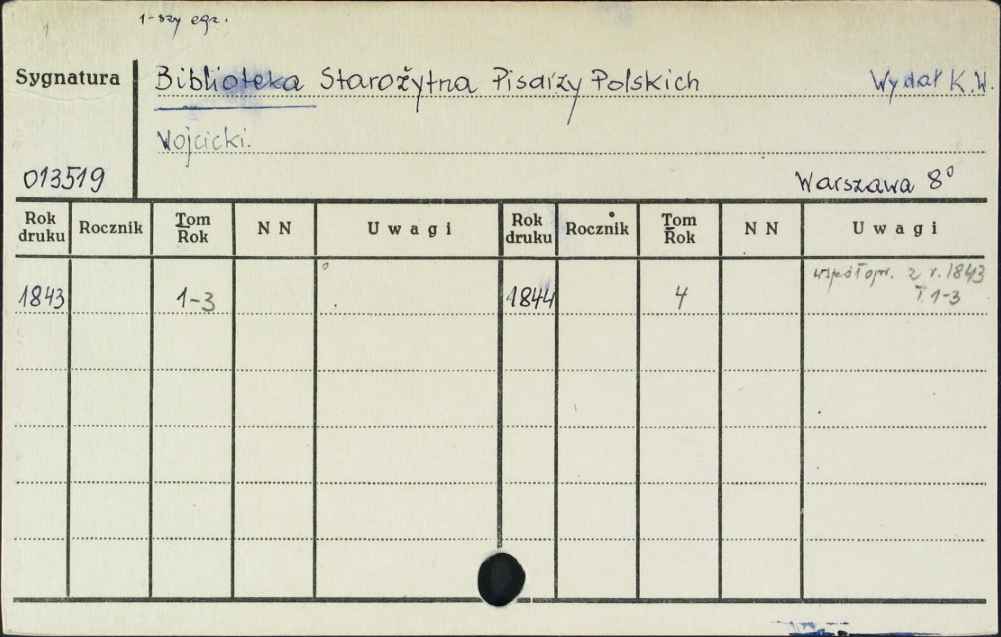 1-szy egz.
Sygnatura
Biblioteka Starožytna Pisarzy Polskich Wydał K.W.
Wojcicki.
013519
Warszawa 8°
Rok druku Rocznik Tom Rok N N Uwagi Rok druku Rocznik Tom Rok N N Uwagi
1843 1-3 1844 4 współopr. z r. 1843
T. 1-3